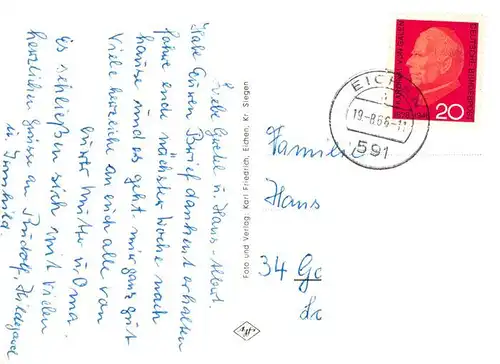 Liebe Gretel u. Hans-Albert.
Habe Euren Brief dankend erhalten
fahre ende nächster Woche nach
hause und es geht mir ganz gut
Viele herzliche an euch alle von
eurer Mutter u. Oma.
Es schließen sich mit vielen
herzlichen grüssen an Rudolf, Hildegard
u.
Foto und Verlag: Karl Friedrich, Eichen, Kr Siegen
EICHEN
19-8.66-11
591
DEUTSCHE BUNDESPOST
20
Familie
Hans
34 Gö